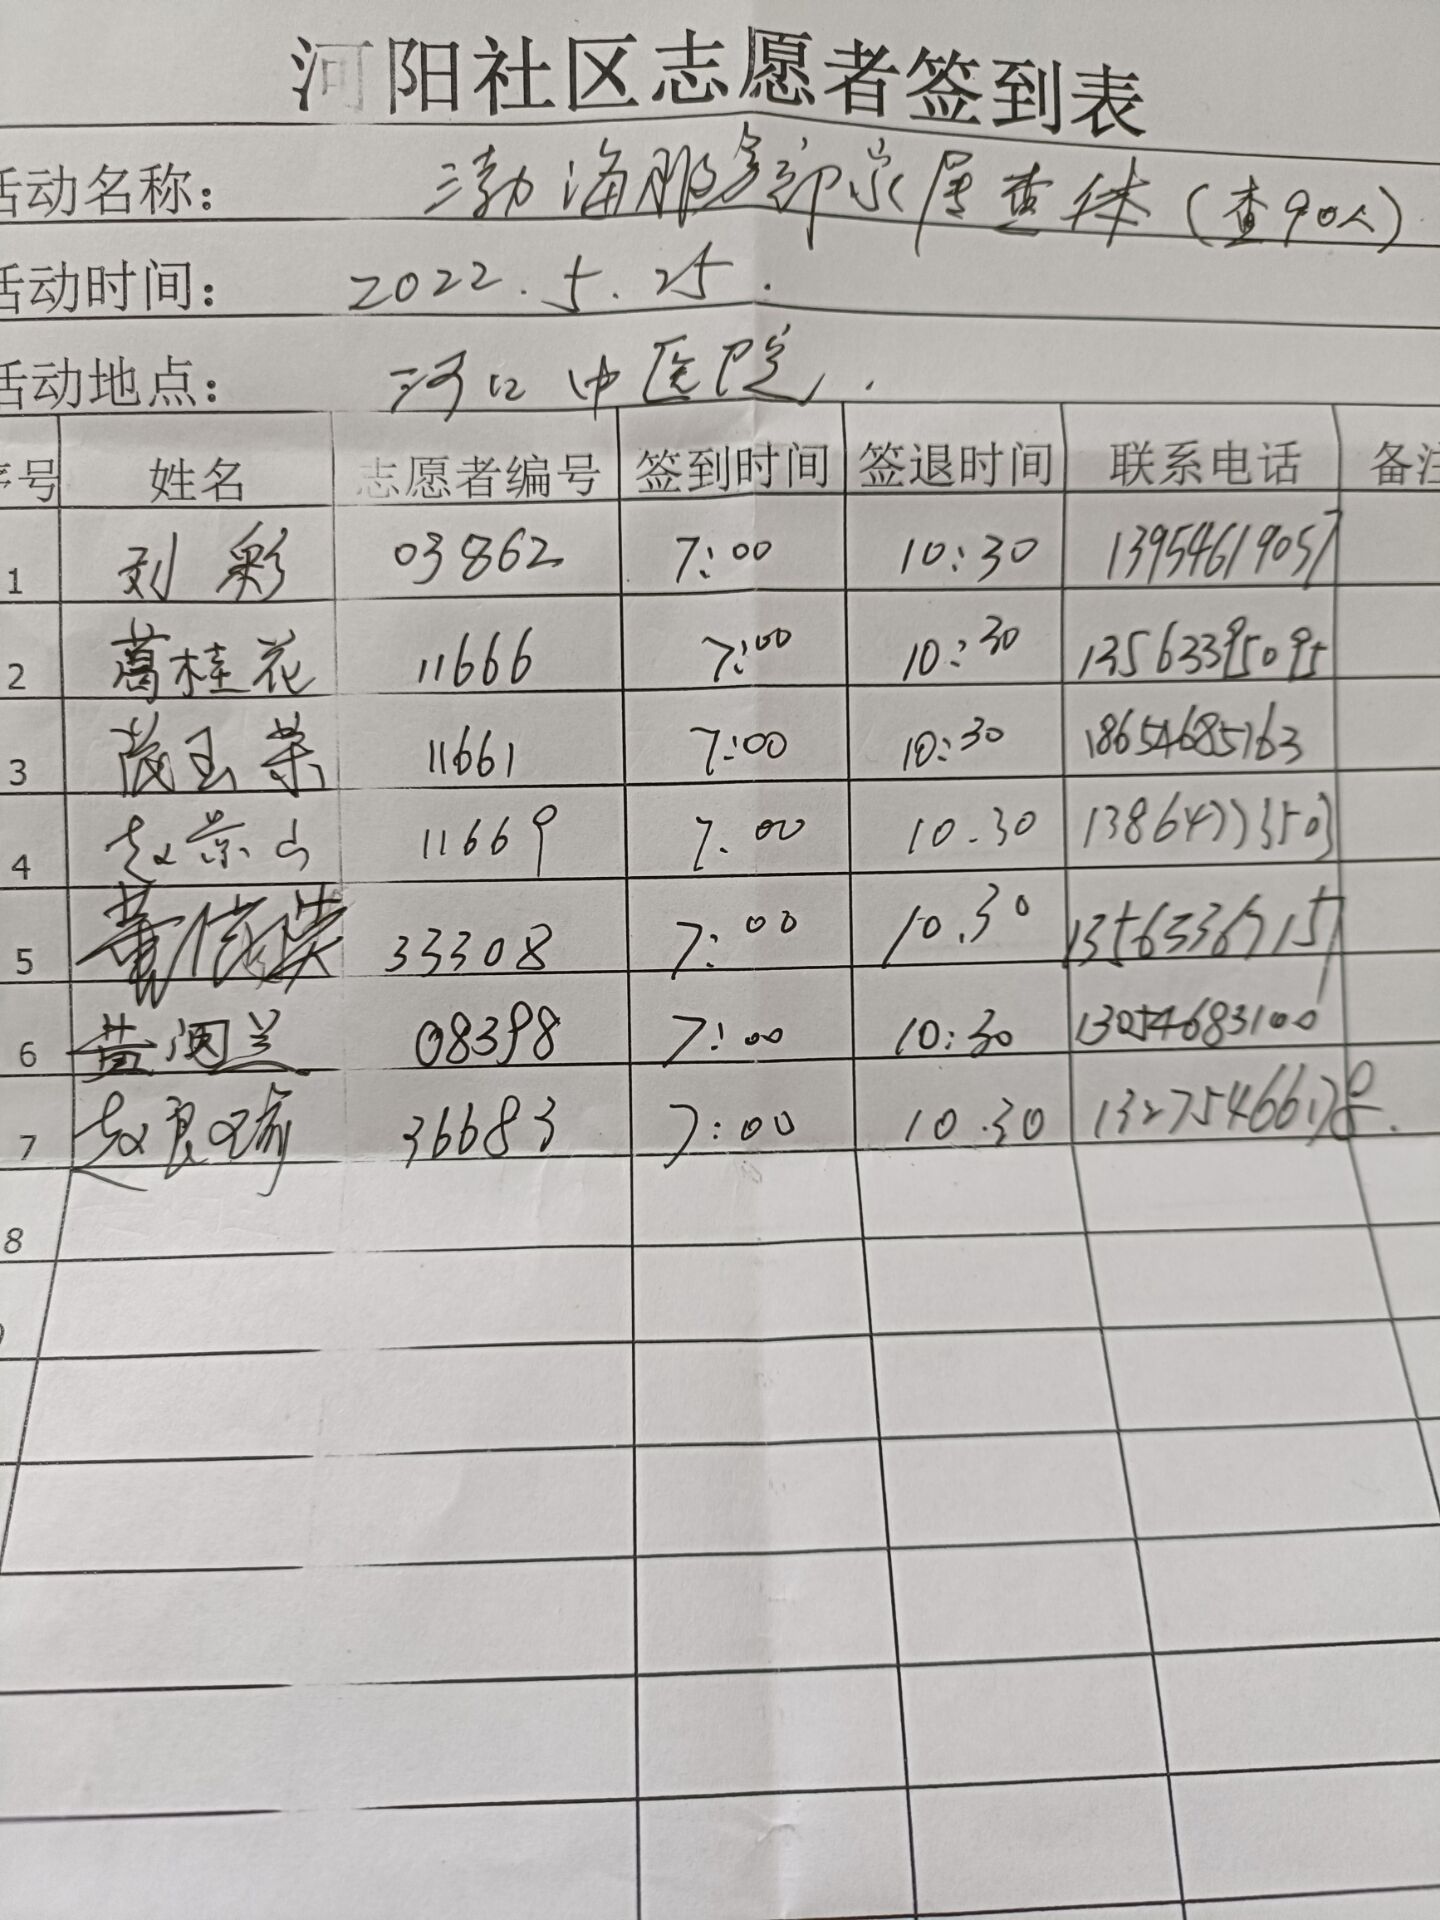 河阳社区志愿者签到表
活动名称： 渤海服务部家属查体（查90人）
活动时间： 2022.5.25.
活动地点： 河口中医院.
序号 姓名 志愿者编号 签到时间 签退时间 联系电话 备注
1 刘彩 03862 7:00 10:30 13954619057
2 葛桂花 11666 7:00 10:30 13563395095
3 玉荣 11661 7:00 10:30 18654685763
4 赵景山 11669 7.00 10.30
5 董 33308 7:00 10.30 13563367157
6 黄润兰 08398 7:00 10:30 13054683100
7 赵良瑜 36683 7:00 10.30 13275466178.
8